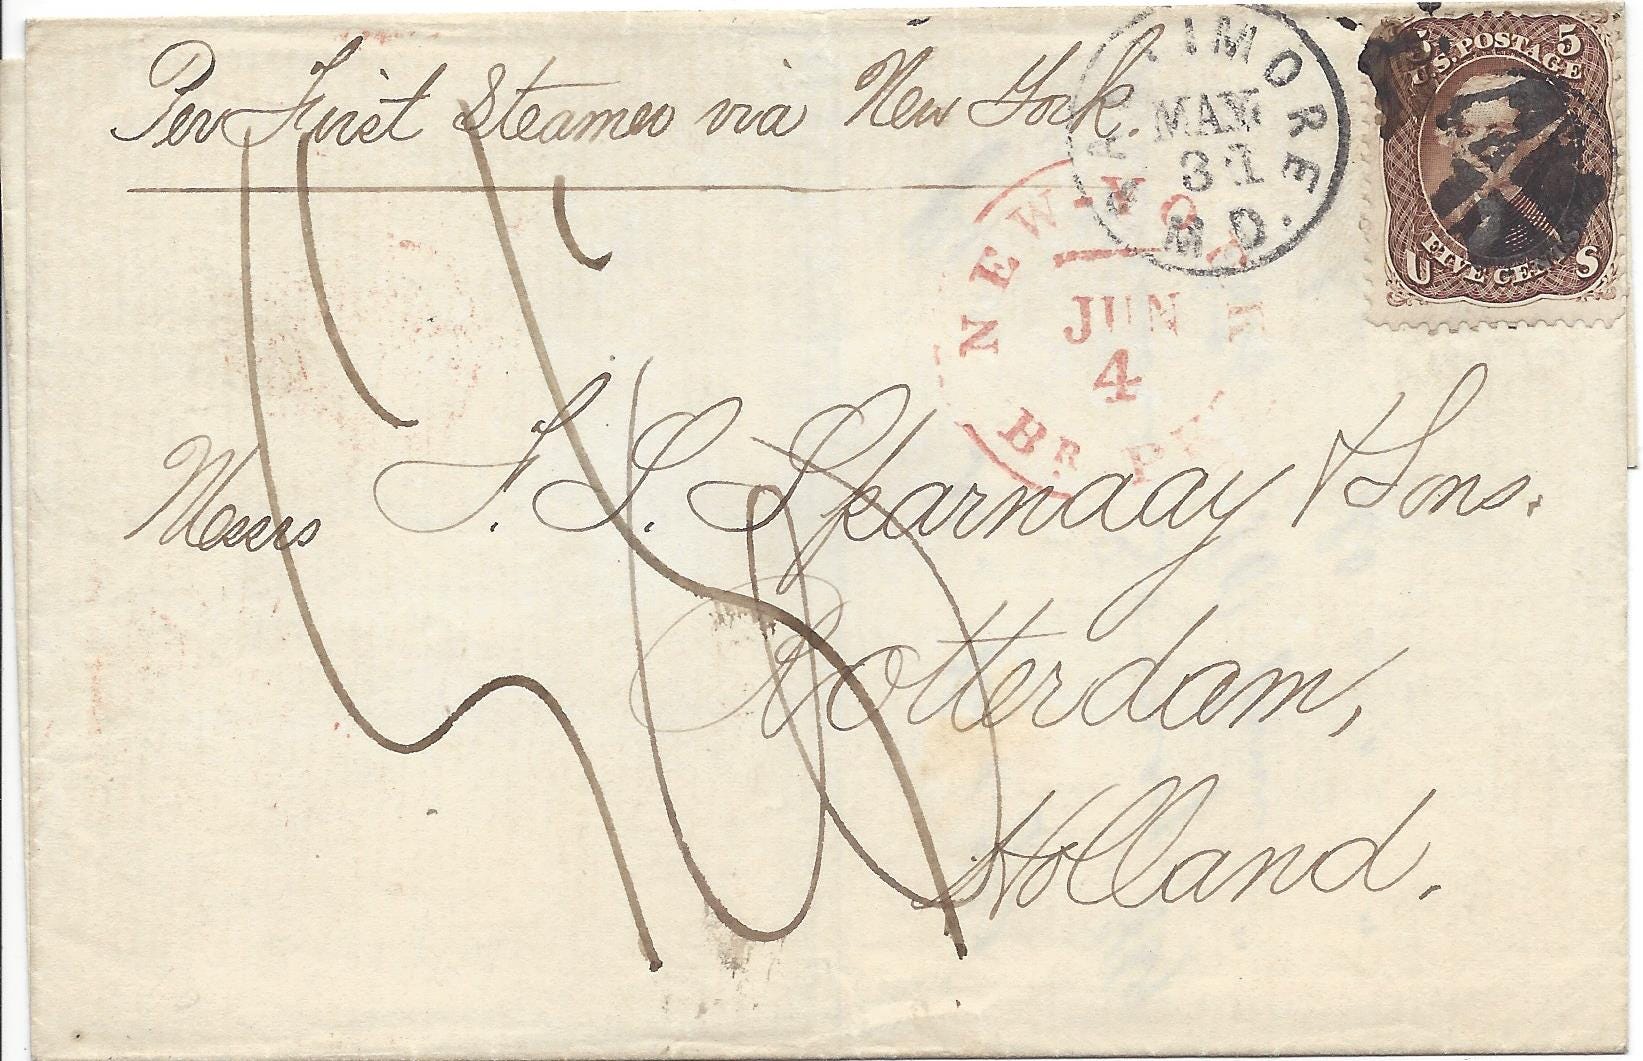 Per First Steamer via New York.
TIMORE
MAY
31
MD.
5 5
U.S. POSTAGE
FIVE CENTS
U S
NEW YORK
JUN
4
BR. PKT
Messrs J. S. & Sons.
Rotterdam,
Holland.